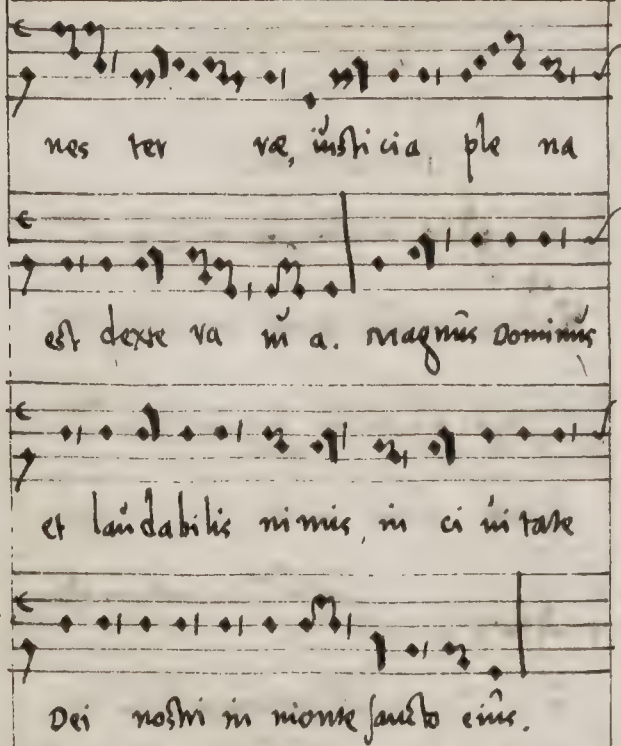 nes ter ræ, iusticia ple na
est dexte ra tu a. Magnus Dominus
et laudabilis nimis, in ci ui tate
Dei nostri in monte sancto eius.